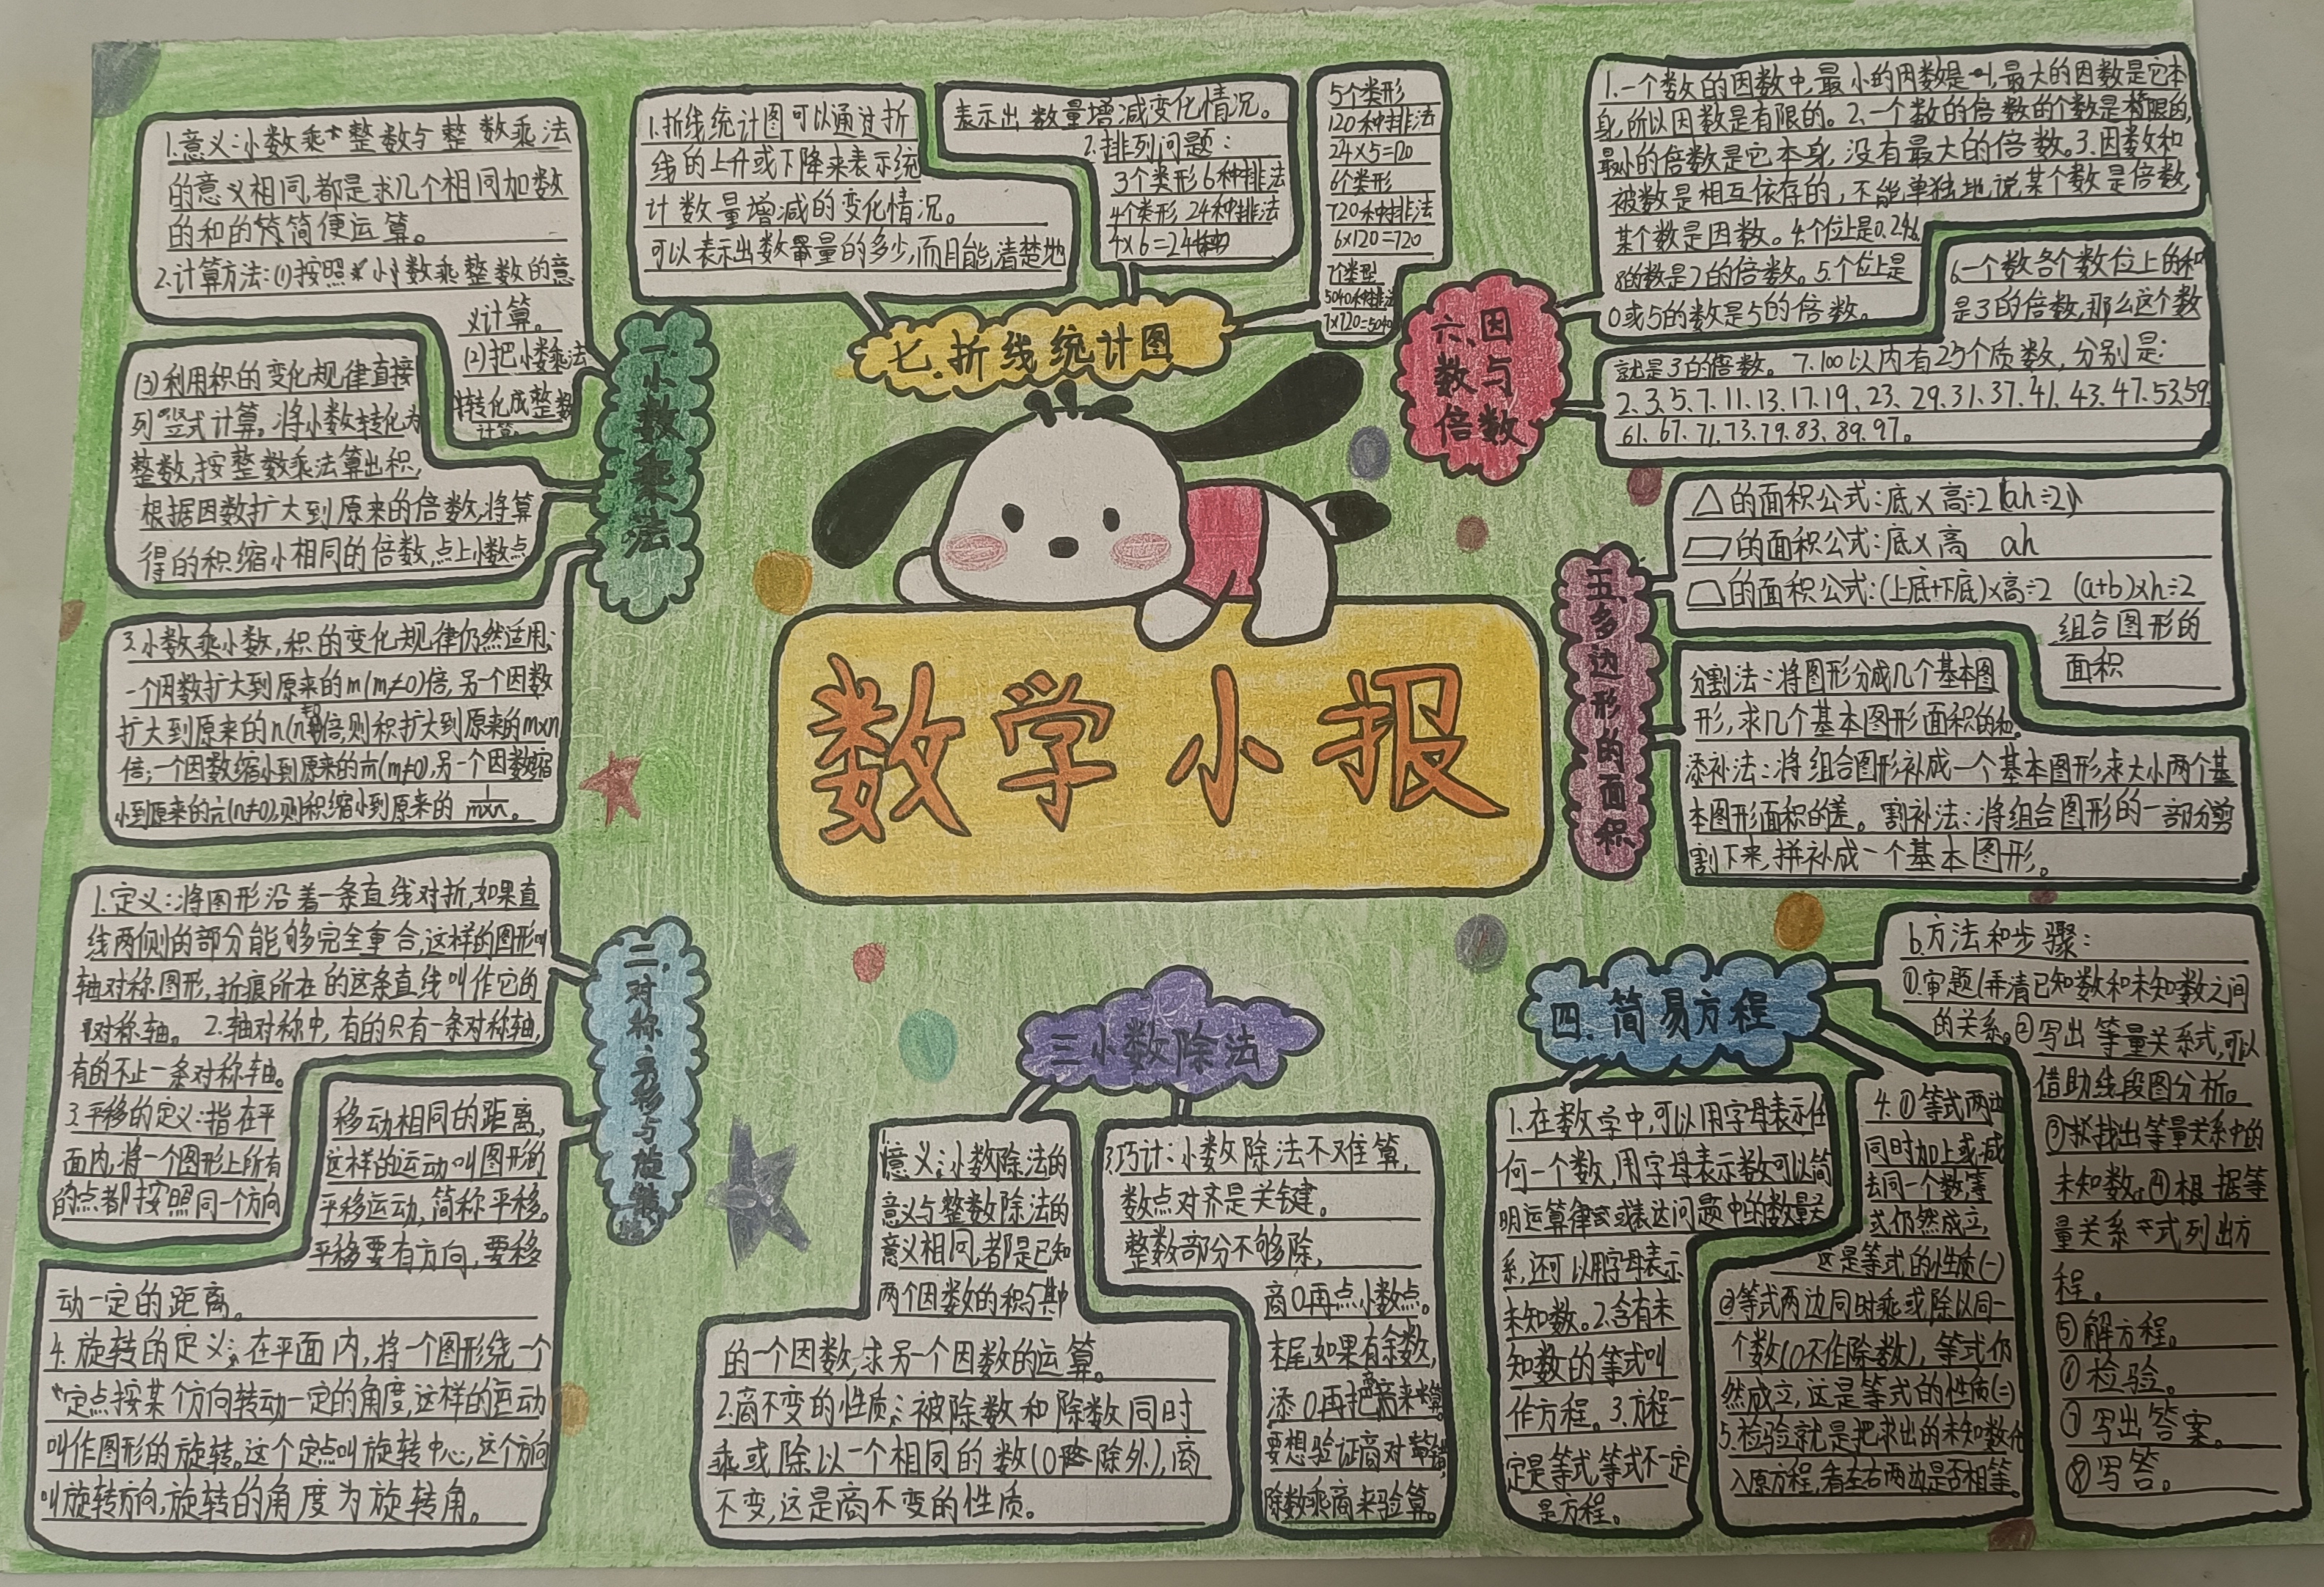 数学小报
一.小数乘法
1.意义:小数乘整数与整数乘法
的意义相同,都是求几个相同加数
的和的简便运算。
2.计算方法:(1)按照小数乘整数的意
义计算。
(2)把小数乘法
转化成整数
计算。
(3)利用积的变化规律直接
列竖式计算。将小数转化为
整数,按整数乘法算出积,
根据因数扩大到原来的倍数,将算
得的积缩小相同的倍数,点上小数点
3.小数乘小数,积的变化规律仍然适用:
一个因数扩大到原来的m(m≠0)倍,另一个因数
扩大到原来的n(n≠0)倍,则积扩大到原来的m×n
倍;一个因数缩小到原来的1/m(m≠0),另一个因数缩
小到原来的1/n(n≠0),则积缩小到原来的1/m×n。
二.对称.平移与旋转
1.定义:将图形沿着一条直线对折,如果直
线两侧的部分能够完全重合,这样的图形叫
轴对称图形,折痕所在的这条直线叫作它的
对称轴。2.轴对称中,有的只有一条对称轴,
有的不止一条对称轴。
3.平移的定义:指在平
面内,将一个图形上所有
的点都按照同一个方向
移动相同的距离,
这样的运动叫图形的
平移运动,简称平移。
平移要有方向,要移
动一定的距离。
4.旋转的定义:在平面内,将一个图形绕一个
定点按某个方向转动一定的角度,这样的运动
叫作图形的旋转。这个定点叫旋转中心,这个方向
叫旋转方向,旋转的角度为旋转角。
三小数除法
1.意义:小数除法的
意义与整数除法的
意义相同,都是已知
两个因数的积与其中
的一个因数,求另一个因数的运算。
2.商不变的性质:被除数和除数同时
乘或除以一个相同的数(0除外),商
不变,这是商不变的性质。
3.巧计:小数除法不难算,
数点对齐是关键。
整数部分不够除,
商0再点小数点。
末尾如果有余数,
添0再把商来算。
要想验证商对错,
除数乘商来验算。
四.简易方程
1.在数学中,可以用字母表示任
何一个数,用字母表示数可以简
明运算律或表达问题中的数量关
系,还可以用字母表示
未知数。2.含有未
知数的等式叫
作方程。3.方程一
定是等式,等式不一定
是方程。
4.①等式两边
同时加上或减
去同一个数,等
式仍然成立,
这是等式的性质(一)
②等式两边同时乘或除以同一
个数(0不作除数),等式仍
然成立,这是等式的性质(二)
5.检验就是把求出的未知数代
入原方程,看左右两边是否相等。
6.方法和步骤:
①审题(弄清已知数和未知数之间
的关系。②写出等量关系式,可以
借助线段图分析。
③找出等量关系中的
未知数。④根据等
量关系式列出方
程。
⑤解方程。
⑥检验。
⑦写出答案。
⑧写答。
五.多边形的面积
△的面积公式:底×高÷2(ah÷2)
▱的面积公式:底×高 ah
的面积公式:(上底+下底)×高÷2 (a+b)×h÷2
组合图形的
面积
分割法:将图形分成几个基本图
形,求几个基本图形面积的和。
添补法:将组合图形补成一个基本图形,求大小两个基
本图形面积的差。割补法:将组合图形的一部分剪
割下来,拼补成一个基本图形。
六.因数与倍数
1.一个数的因数中,最小的因数是1,最大的因数是它本
身,所以因数是有限的。2.一个数的倍数的个数是限的,
最小的倍数是它本身,没有最大的倍数。3.因数和
被数是相互依存的,不能单独地说某个数是倍数,
某个数是因数。4.个位上是0.2.4.6.
8的数是2的倍数。5.个位上是
0或5的数是5的倍数。
6.一个数各个数位上的和
是3的倍数,那么这个数
就是3的倍数。7.100以内有25个质数,分别是:
2、3、5、7、11、13、17、19、23、29、31、37、41、43、47、53、59
61、67、71、73、79、83、89、97。
七.折线统计图
1.折线统计图可以通过折
线的上升或下降来表示统
计数量增减的变化情况。
可以表示出数量的多少,而且能清楚地
表示出数量增减变化情况。
2.排列问题:
3个类形6种排法
4个类形24种排法
4×6=24
5个类形
120种排法
24×5=120
6个类形
720种排法
6×120=720
7个类型
5040种排法
7×720=5040